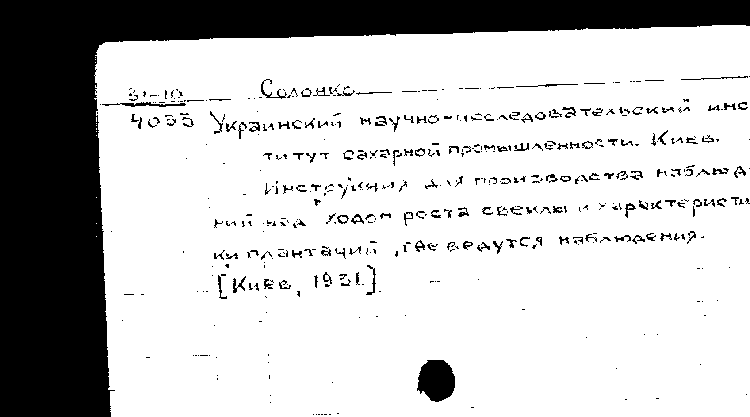 31-10 Солонко
4035 Украинский научно-исследовательский инс
титут сахарной промышленности. Киев.
Инструкция для производства наблюд
ний над ходом роста свеклы и характеристи
ки плантаций, где ведутся наблюдения.
[Киев, 1931]